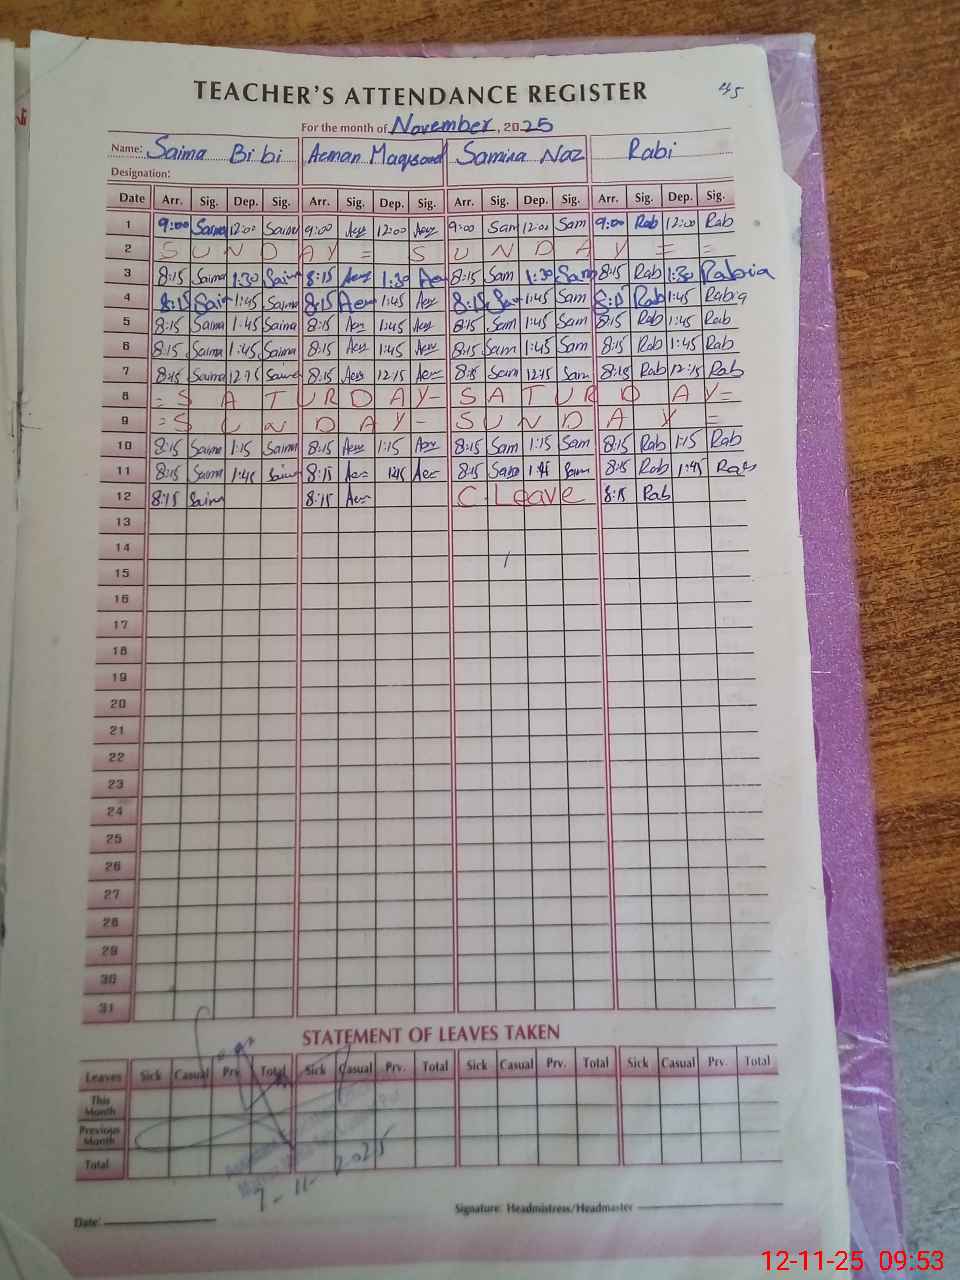 TEACHER'S ATTENDANCE REGISTER
45
For the month of November, 2025
Name: Saima Bibi Aeman Maqsood Samina Naz Rabi
Designation:
Date Arr. Sig. Dep. Sig. Arr. Sig. Dep. Sig. Arr. Sig. Dep. Sig. Arr. Sig. Dep. Sig.
1 9:00 Saima 12:00 Saima 9:00 12:00 9:00 Sam 12:00 Sam 9:00 Rab 12:00 Rab
2 SUNDAY = SUNDAY = =
3 8:15 Saima 1:30 Saim 8:15 1:30 8:15 Sam 1:30 Sam 8:15 Rab 1:30 Rabia
4 8:15 Sai 1:45 Saima 8:15 1:45 8:15 Sam 1:45 Sam 8:15 Rab 1:45 Rabia
5 8:15 Saima 1:45 Saima 8:15 1:45 8:15 Sam 1:45 Sam 8:15 Rab 1:45 Rab
6 8:15 Saima 1:45 Saima 8:15 1:45 8:15 Sam 1:45 Sam 8:15 Rab 1:45 Rab
7 8:15 Saima 12:15 Saima 8:15 12:15 8:15 Sam 12:15 Sam 8:15 Rab 12:15 Rab
8 = SATURDAY - SATURDAY =
9 = SUNDAY - SUNDAY =
10 8:15 Saima 1:15 Saima 8:15 1:15 8:15 Sam 1:15 Sam 8:15 Rab 1:15 Rab
11 8:15 Saima 1:45 Saim 8:15 1:45 8:15 Sam 1:45 Sam 8:15 Rab 1:45 Rab
12 8:15 Saima 8:15 C. Leave 8:15 Rab
13
14
15
16
17
18
19
20
21
22
23
24
25
26
27
28
29
30
31
STATEMENT OF LEAVES TAKEN
Leaves Sick Casual Prv. Total Sick Casual Prv. Total Sick Casual Prv. Total Sick Casual Prv. Total
This Month
Previous Month
Total
7-11-2025
Date: Signature: Headmistress/Headmaster
12-11-25 09:53